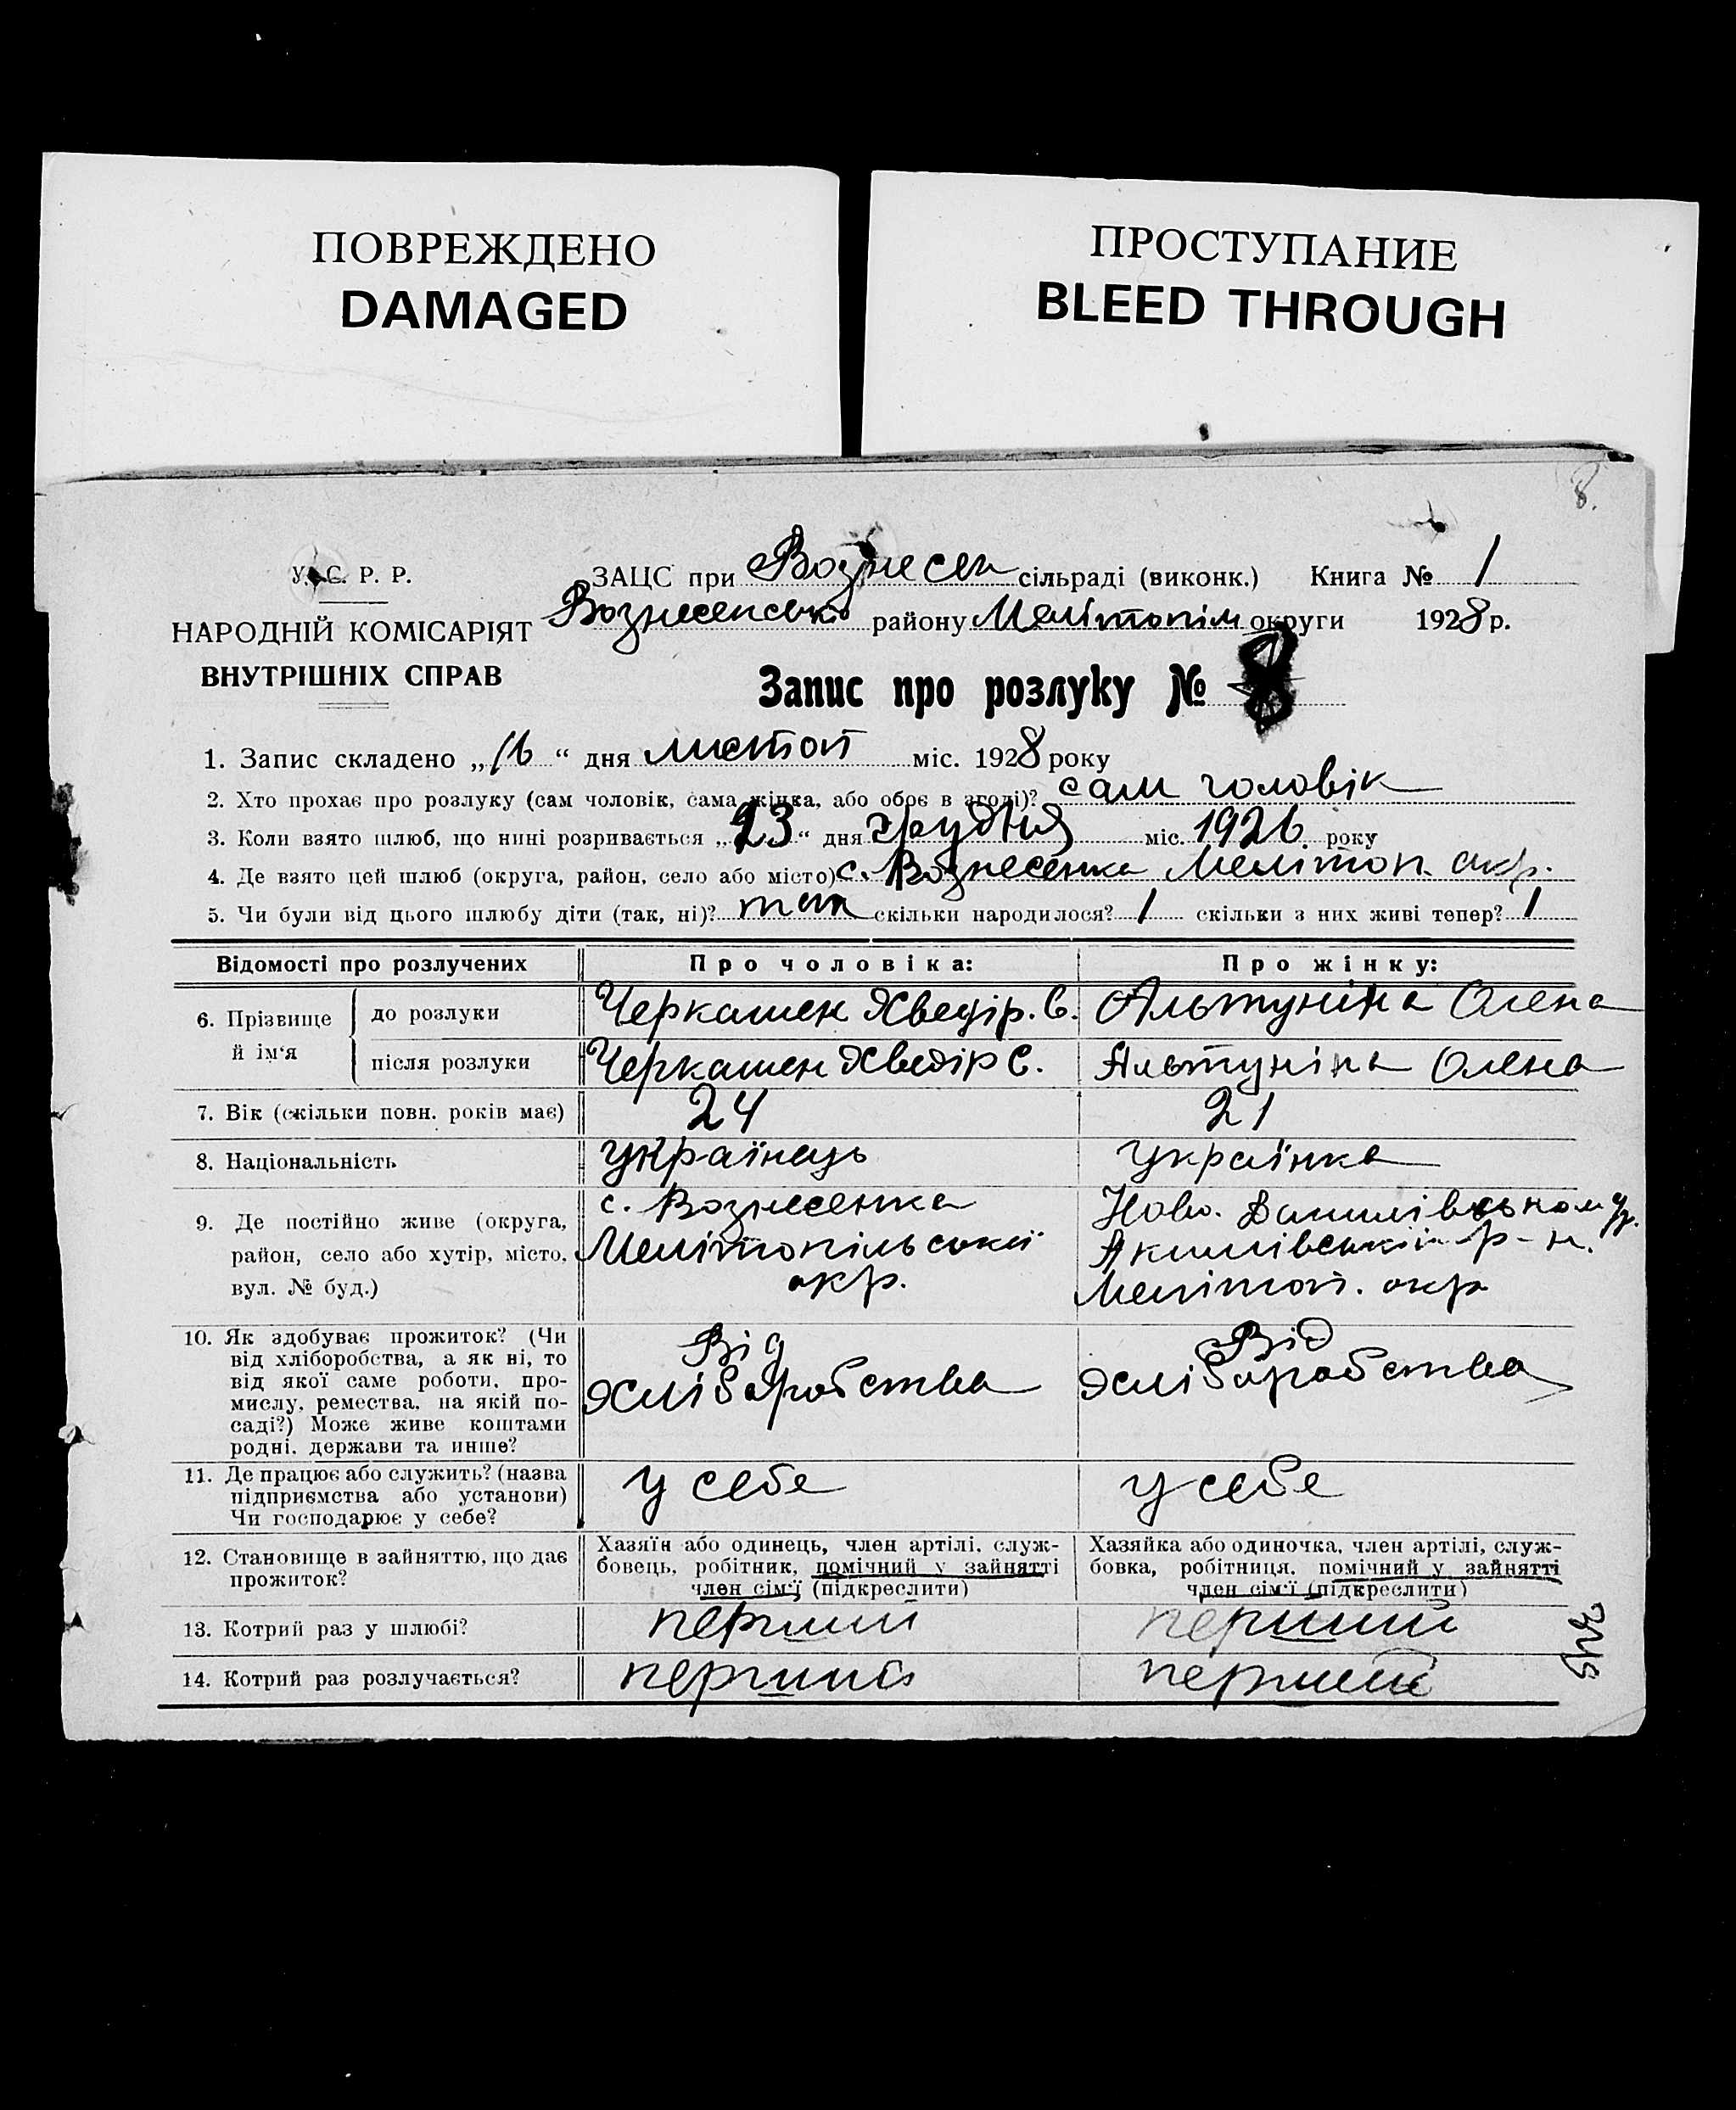 ПОВРЕЖДЕНО
DAMAGED
ПРОСТУПАНИЕ
BLEED THROUGH
8.
У. С. Р. Р.
НАРОДНІЙ КОМІСАРІЯТ
ВНУТРІШНІХ СПРАВ
ЗАЦС при Вознесен сільраді (виконк.) Книга № 1
Вознесенсько району Мелітопілм округи 1928 р.
Запис про розлуку № 8
1. Запис складено „16“ дня листоп міс. 1928 року
2. Хто прохає про розлуку (сам чоловік, сама жінка, або обоє в згоді)? сам чоловік
3. Коли взято шлюб, що нині розривається „23“ дня грудня міс. 1926 року
4. Де взято цей шлюб (округа, район, село або місто) с. Вознесенка Мелітоп. окр.
5. Чи були від цього шлюбу діти (так, ні)? так скільки народилося? 1 скільки з них живі тепер? 1
Відомості про розлучених Про чоловіка: Про жінку:
6. Прізвище й ім'я
до розлуки Черкашен Хведір. С. Альтуніна Олена
після розлуки Черкашен Хведір С. Альтуніна Олена
7. Вік (скільки повн. років має) 24 21
8. Національність українець українка
9. Де постійно живе (округа,
район, село або хутір, місто,
вул. № буд.)
с. Вознесенка
Мелітопільської
окр.
Ново. Данилівському
Якимівській р-н.
Мелітоп. окр
10. Як здобуває прожиток? (Чи
від хліборобства, а як ні, то
від якої саме роботи, про-
мислу, ремества, на якій по-
саді?) Може живе коштами
родні, держави та инше?
Від
хліборобства
Від
хліборобства
11. Де працює або служить? (назва
підприємства або установи)
Чи господарює у себе?
у себе
у себе
12. Становище в зайняттю, що дає
прожиток?
Хазяїн або одинець, член артілі, служ-
бовець, робітник, помічний у зайнятті
член сім'ї (підкреслити)
Хазяйка або одиночка, член артілі, служ-
бовка, робітниця, помічний у зайнятті
член сім'ї (підкреслити)
13. Котрий раз у шлюбі? перший перший
14. Котрий раз розлучається? перший перший